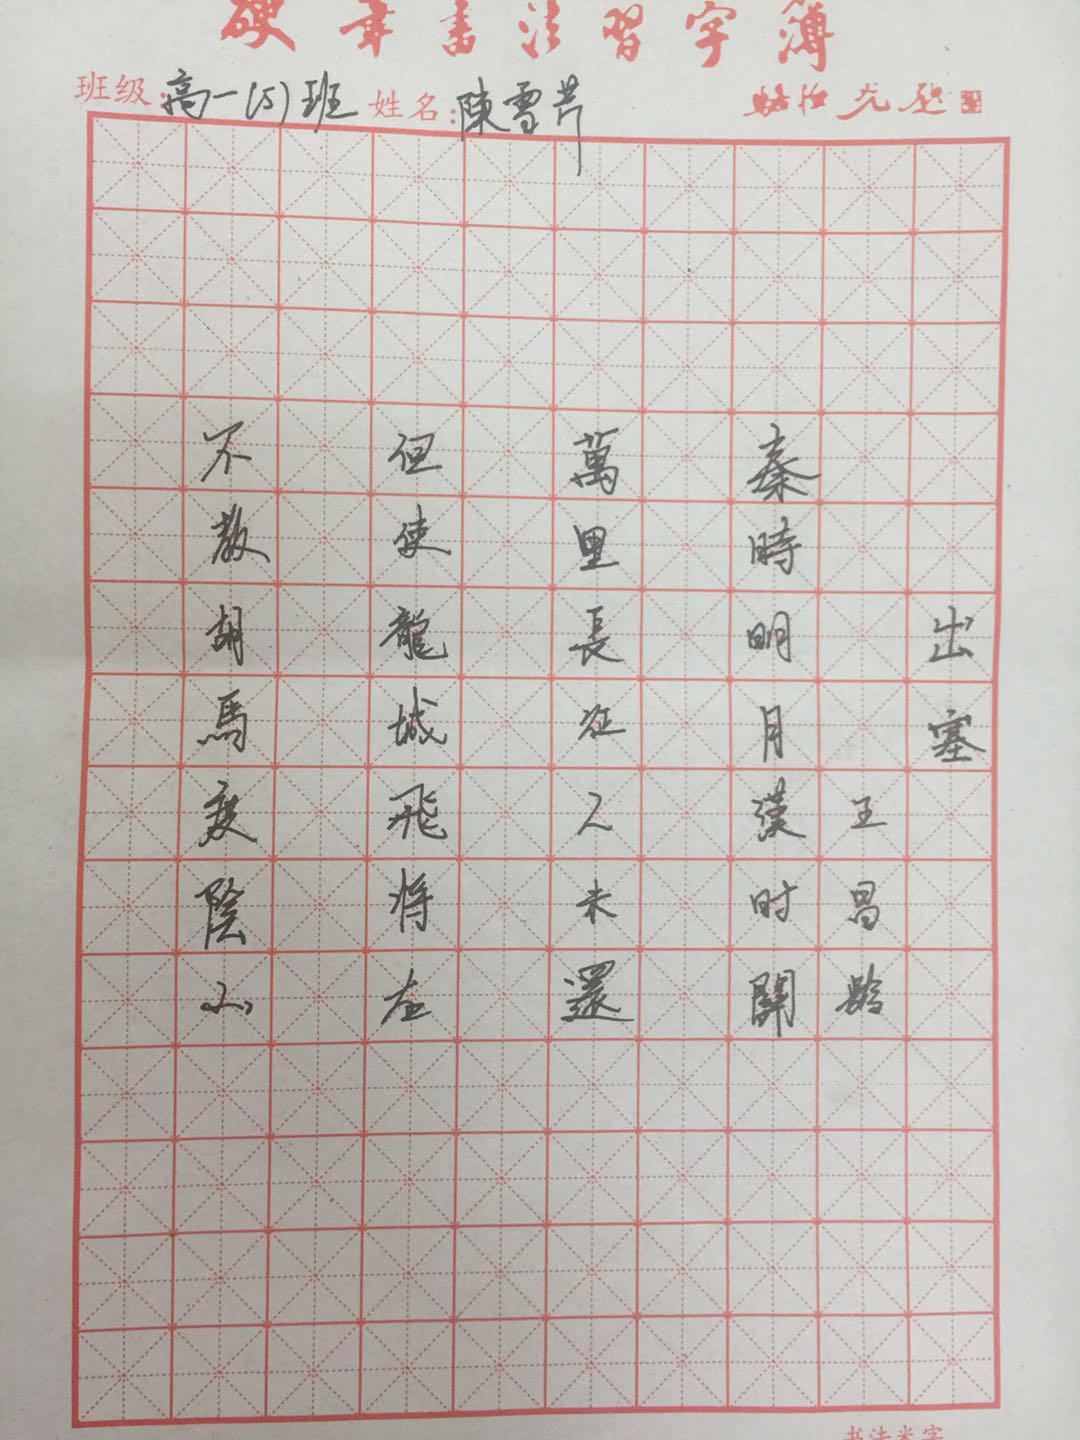 硬笔書法習字薄
班级：高一(5)班 姓名：陳雪芹
出塞
王昌齡
秦時明月漢时關
萬里長征人未還
但使龍城飛將在
不教胡馬度陰山
书法米字